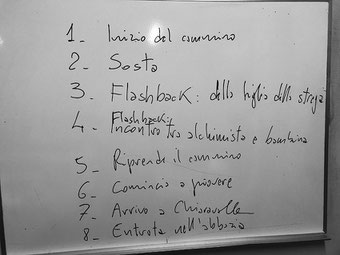 1_ Inizio del cammino
2_ Sosta
3_ Flashback: della figlia della strega
4_ Flashback: Incontro tra alchimista e bambina
5_ Riprende il cammino
6_ Comincia a piovere
7_ Arrivo a Chiaravalle
8_ Entrata nell'abbazia